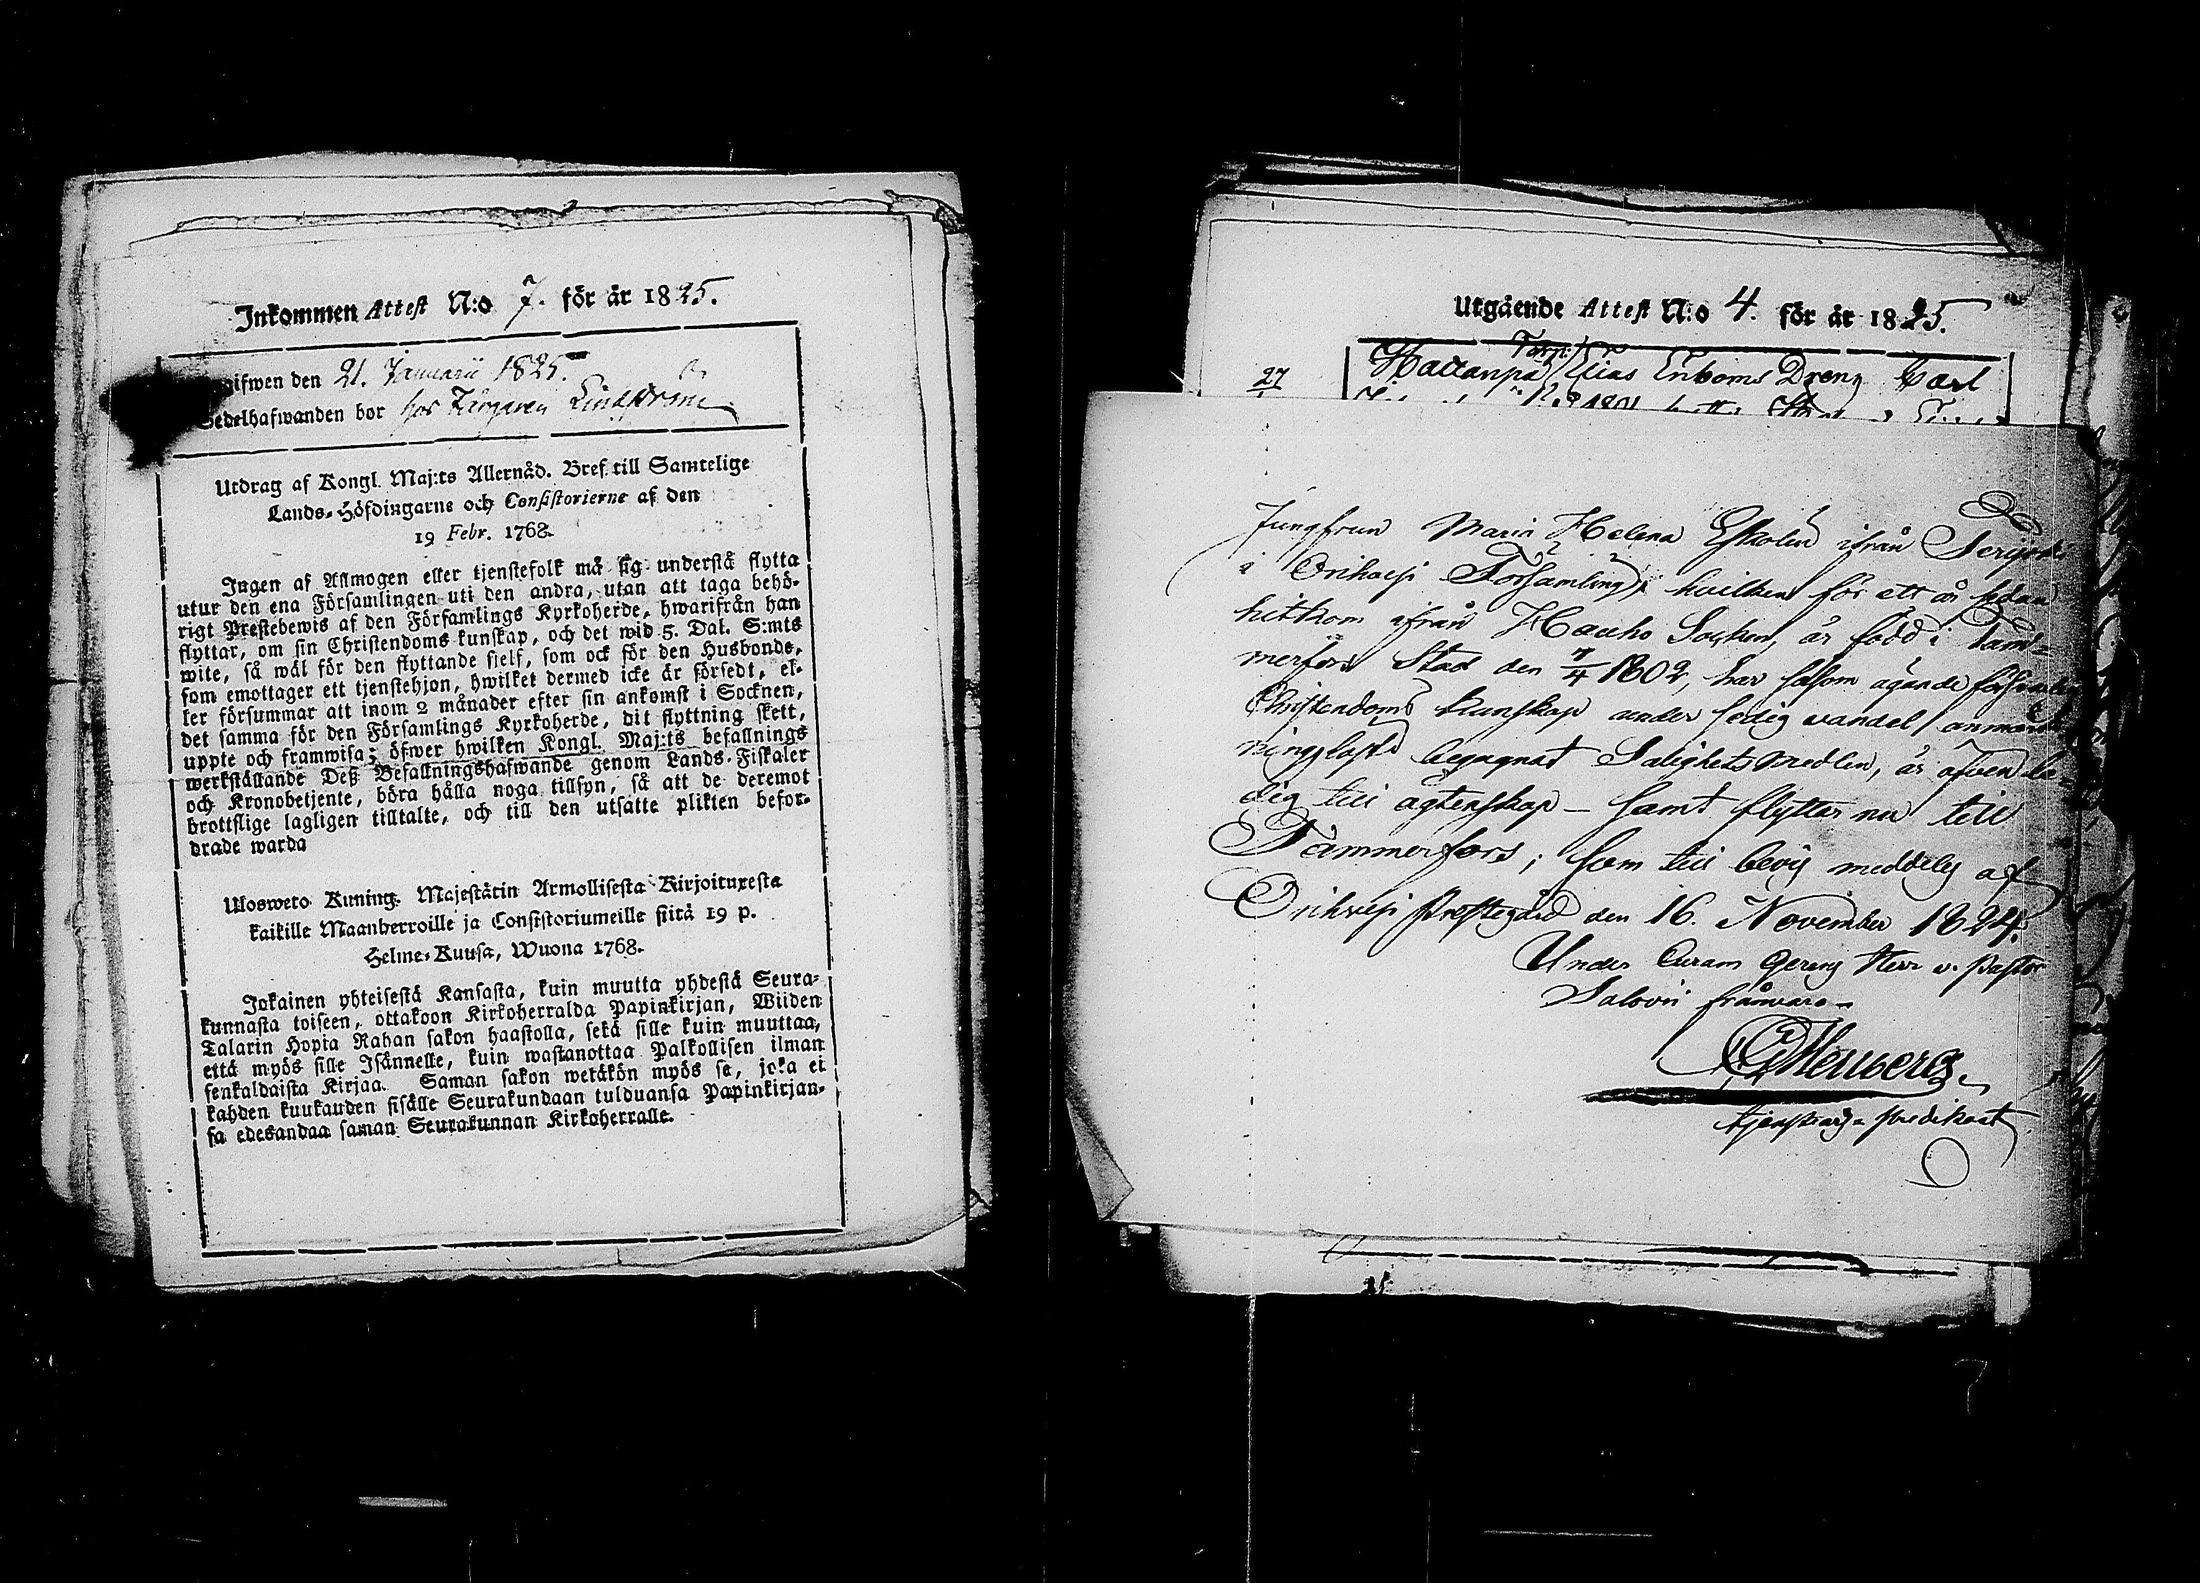 Inkommen Attest N:o 7. för år 1825.
gifwen den 21. Januarii 1825.
Sedelhafwanden bor hos Färgaren Lindström
Utdrag af Kongl. Maj:ts Allernåd. Bref till Samtelige
Lands-Höfdingarne och Consistorierne af den
19 Febr. 1768.
Ingen af Allmogen eller tjenstefolk må sig understå flytta
utur den ena Församlingen uti den andra, utan att taga behö-
rigt Prestebewis af den Församlings Kyrkoherde, hwarifrån han
flyttar, om sin Christendoms kunskap, och det wid 5. Dal. S:mts
wite, så wäl för den flyttande sjelf, som ock för den Husbonde,
som emottager ett tjenstehjon, hwilket dermed icke är försedt, el-
ler försummar att inom 2 månader efter sin ankomst i Socknen,
det samma för den Församlings Kyrkoherde, dit flyttning skett,
uppte och framwisa; öfwer hwilken Kongl. Maj:ts befallnings
werkställande Deß Befallningshafwande genom Lands-Fiskaler
och Kronobetjente, böra hålla noga tillsyn, så att de deremot
brottslige lagligen tilltalte, och till den utsatte plikten befor-
drade warda
Ulosweto Kuning. Majestätin Armollisesta Kirjoituxesta
kaikille Maanherroille ja Consistoriumeille siitä 19 p.
Helme-Kuusa, Wuona 1768.
Jokainen yhteisestä Kansasta, kuin muutta yhdestä Seura-
kunnasta toiseen, ottakoon Kirkoherralda Papinkirjan, Wiiden
Talarin Hopia Rahan sakon haastolla, sekä sille kuin muuttaa,
että myös sille Isännelle, kuin wastanottaa Palkollisen ilman
senkaldaista Kirjaa. Saman sakon wetäkön myös se, joka ei
kahden kuukauden sisälle Seurakundaan tulduansa Papinkirjan-
sa edesandaa saman Seurakunnan Kirkoherralle.
Utgående Attest N:o 4. för år 1825.
27 Hattanpä Elias Enboms Dreng Carl
Jungfrun Maria Helena Eskolin ifrån
i Orihvesi Församling, hvilken för ett år sedan
hitkom ifrån Hauho Sochen, är född i Tam-
merfors Stad den 7/4 1802, har såsom ägande försvarlig
Christendoms kunskap under sedig vandel anmärk
ningslöst begagnat Salighets medlen, är äfven le-
dig till ägtenskap – samt flyttar nu till
Tammerfors; som till bevis meddelas af
Orihvesi Prestegård den 16. November 1824.
Under Curam gerens Herr v. Pastor
Salovii frånvaro–
tjenstenjs Predikant